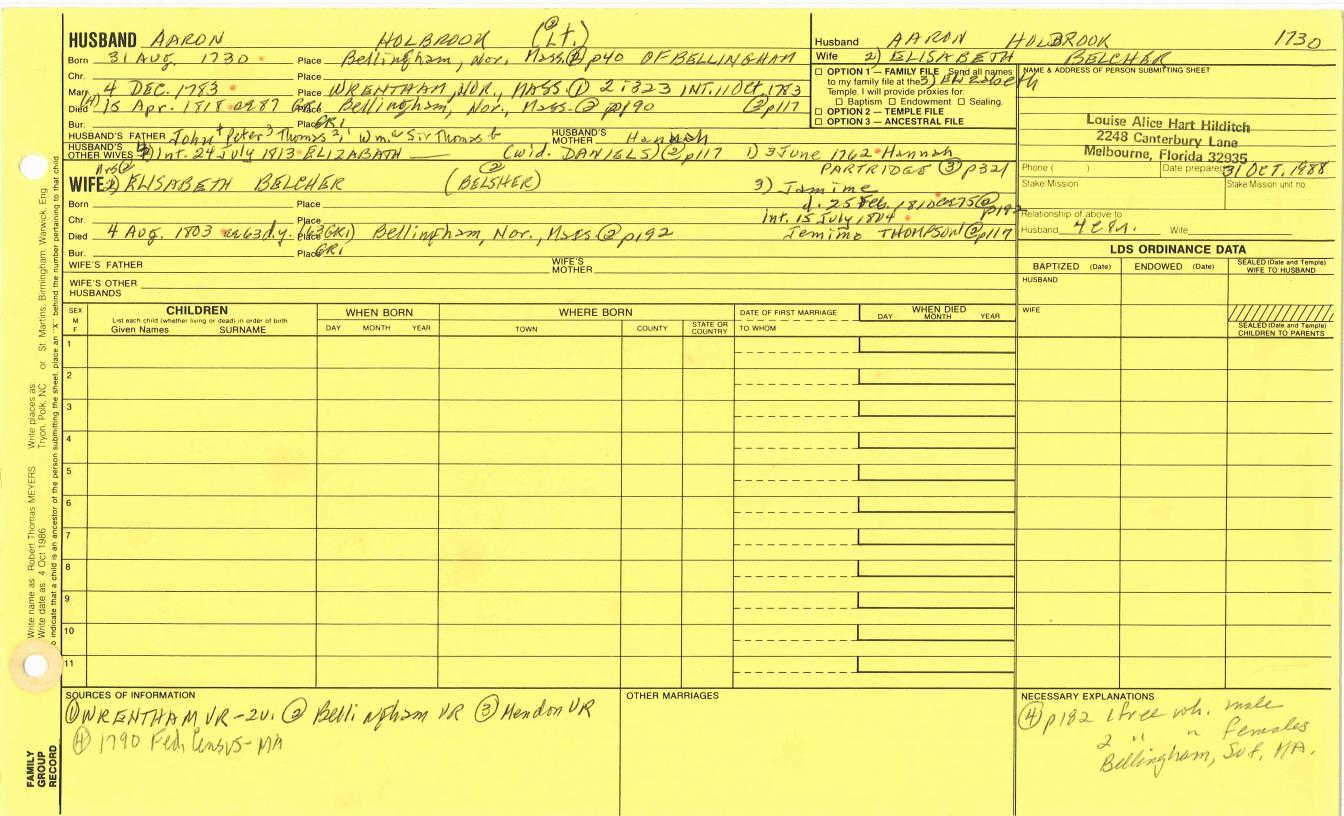 HUSBAND AARON HOLBROOK (② Lt.)
Born 31 AUG. 1730 Place Bellingham, Nor. Mass. ② p40 OF BELLINGHAM
Chr. Place
Marr. 4 DEC. 1783 Place WRENTHAM, NOR., MASS. ① 2:323 INT. 11 Oct, 1783
Died 15 Apr. 1818 ae 87 GR1 Place Bellingham, Nor., Mass. ② p190 ② p117
Bur. Place GR1
HUSBAND'S FATHER John 4 Peter 3 Thomas 2, 1 Wm. a Sir Thomas b HUSBAND'S MOTHER Hannah
HUSBAND'S OTHER WIVES 4) Int. 24 July 1813 ELIZABATH (wid. DANIELS) ② p117 1) 3 June 1762 Hannah
PARTRIDGE ③ p321
WIFE 2) ELISABETH BELCHER (② BELSHER)
3) Jamime
d. 25 Feb. 1810 ae 75 ② p192
Born Place
Int. 15 July 1804
Chr. Place
Jemima THOMPSON ② p117
Died 4 Aug. 1803 ae 63 d.y. (63 GR1) Place Bellingham, Nor., Mass ② p192
Bur. Place GR1
WIFE'S FATHER WIFE'S MOTHER
WIFE'S OTHER HUSBANDS
Husband AARON HOLBROOK 1730
Wife 2) ELISABETH BELCHER
☐ OPTION 1 — FAMILY FILE Send all names
to my family file at the
Temple. I will provide proxies for:
☐ Baptism ☐ Endowment ☐ Sealing.
☐ OPTION 2 — TEMPLE FILE
☐ OPTION 3 — ANCESTRAL FILE
NAME & ADDRESS OF PERSON SUBMITTING SHEET
Louise Alice Hart Hilditch
2248 Canterbury Lane
Melbourne, Florida 32935
Phone ( ) Date prepared 31 OCT. 1988
Stake/Mission Stake/Mission unit no.
Relationship of above to
Husband Wife
LDS ORDINANCE DATA
BAPTIZED (Date) ENDOWED (Date) SEALED (Date and Temple) WIFE TO HUSBAND
HUSBAND
WIFE
SEALED (Date and Temple) CHILDREN TO PARENTS
SEX M F
CHILDREN
List each child (whether living or dead) in order of birth
Given Names SURNAME
WHEN BORN
DAY MONTH YEAR
WHERE BORN
TOWN COUNTY STATE OR COUNTRY
DATE OF FIRST MARRIAGE
TO WHOM
WHEN DIED
DAY MONTH YEAR
1
2
3
4
5
6
7
8
9
10
11
SOURCES OF INFORMATION
① WRENTHAM VR-2v. ② Bellingham VR ③ Mendon VR
④ 1790 Fed. Census-MA
OTHER MARRIAGES
NECESSARY EXPLANATIONS
④ p182 1 free wh. male
2 " " females
Bellingham, Suf, MA.
Write name as: Robert Thomas MEYERS Write places as: Tryon, Polk, NC or St. Martins, Birmingham, Warwick, Eng
Write date as: 4 Oct 1986
To indicate that a child is an ancestor of the person submitting the sheet, place an "X" behind the number pertaining to that child
FAMILY GROUP RECORD